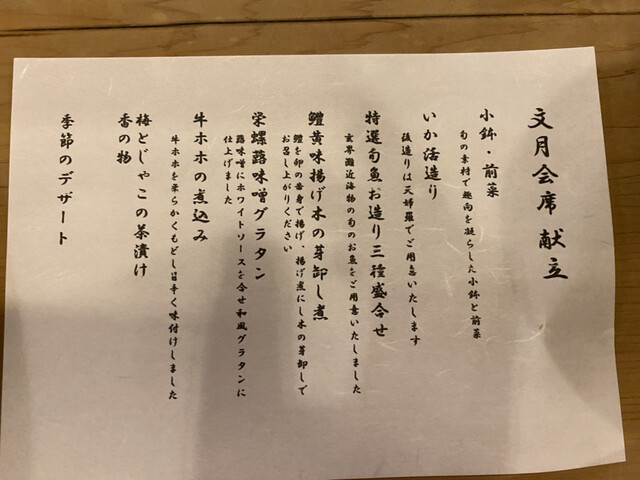 文月会席献立
小鉢・前菜
旬の素材で趣向を凝らした小鉢と前菜
いか活造り
後造りは天婦羅でご用意いたします
特選旬魚お造り三種盛合せ
玄界灘近海物の旬のお魚をご用意いたしました
鱧黄味揚げ木の芽卸し煮
鱧を卵の黄身で揚げ、揚げ煮にし木の芽卸しで
お召し上がりください
栄螺蕗味噌グラタン
蕗味噌にホワイトソースを合せ和風グラタンに
仕上げました
牛ホホの煮込み
牛ホホを柔らかくもどし旨辛く味付けしました
梅とじゃこの茶漬け
香の物
季節のデザート